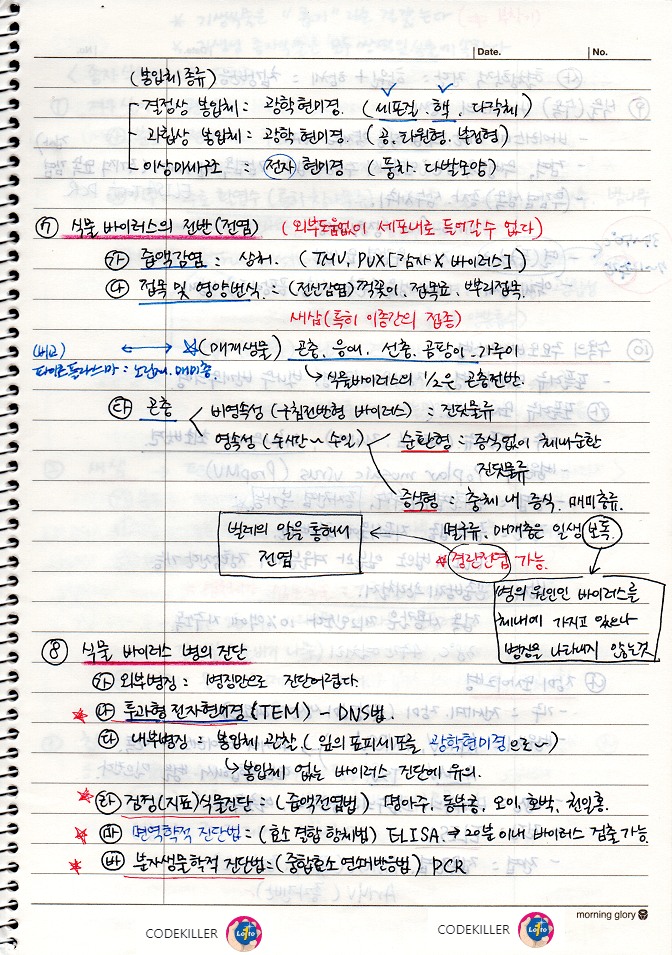 Date.
No.
(봉입체 종류)
결정상 봉입체 : 광학현미경. (세포질. 핵. 다각체)
과립상 봉입체 : 광학 현미경. (공. 타원형. 부정형)
이상미세구조 : 전자 현미경 (풍차. 다발모양)
⑦ 식물 바이러스의 전반(전염) (외부도움없이 세포내로 들어갈수 없다)
㉮ 즙액감염 : 상처. (TMV. PVX[감자X바이러스])
㉯ 접목 및 영양번식. : (전신감염) 꺽꽂이. 접목표. 뿌리접목.
새삼(특히 이종간의 접종)
(비고)
(매개생물) 곤충. 응애. 선충. 곰팡이. 가루이
파이토플라스마 : 노린재. 매미충.
↳식물바이러스의 1/2은 곤충전반.
㉰ 곤충
비영속성 (구침전반형 바이러스) : 진딧물류
영속성 (수시간~수일)
순환형 : 증식없이 체내순환
진딧물류
증식형 : 충체 내 증식. 매미충류.
멸구류. 매개충은 일생 보독.
벌레의 알을 통해서
전염
*경란전염 가능.
병의 원인인 바이러스를
체내에 가지고 있으나
병징을 나타내지 않는것
⑧ 식물 바이러스 병의 진단
㉮ 외부병징 : 병징만으로 진단어렵다
㉯ 투과형 전자현미경 (TEM) - DNS법.
㉰ 내부병징 : 봉입체 관찰. (잎의 표피세포를 광학현미경으로~)
↳봉입체 없는 바이러스 진단에 유의.
㉱ 검정(지표)식물진단 : (즙액전염법) 명아주. 동부콩. 오이. 호박. 천일홍.
㉲ 면역학적 진단법 : (효소결합 항체법) ELISA. → 20분이내 바이러스 검출가능.
㉳ 분자생물학적 진단법 : (중합효소 연쇄반응법) PCR
morning glory
CODEKILLER Lotto
CODEKILLER Lotto